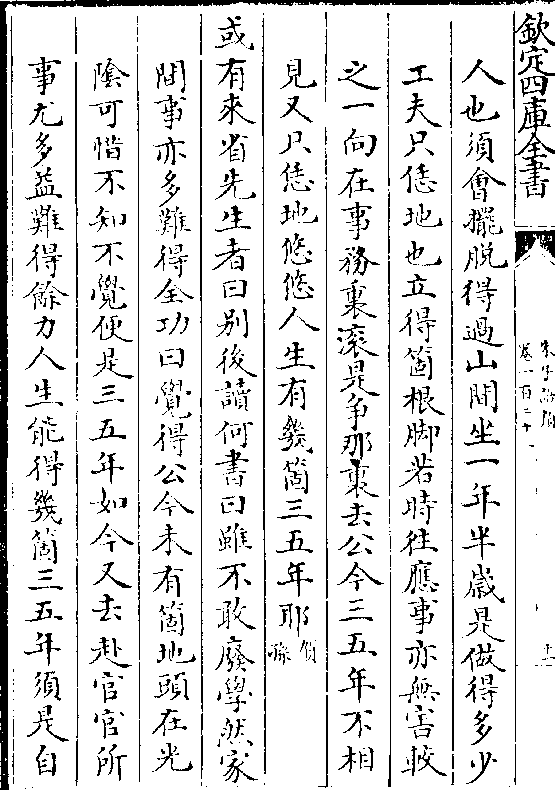 欽定四庫全書
朱子語類
卷一百二十
十一
人也須會擺脫得過山間坐一年半歲是做得多少
工夫只恁地也立得箇根脚若時往應事亦無害較
之一向在事務裏滚是爭那裏去公今三五年不相
見又只恁地悠悠人生有幾箇三五年耶賀孫
或有來省先生者曰别後讀何書曰雖不敢廢學然家
間事亦多難得全功曰覺得公今未有箇地頭在光
隂可惜不知不覺便是三五年如今又去赴官官所
事尤多益難得餘力人生能得幾箇三五年須是自